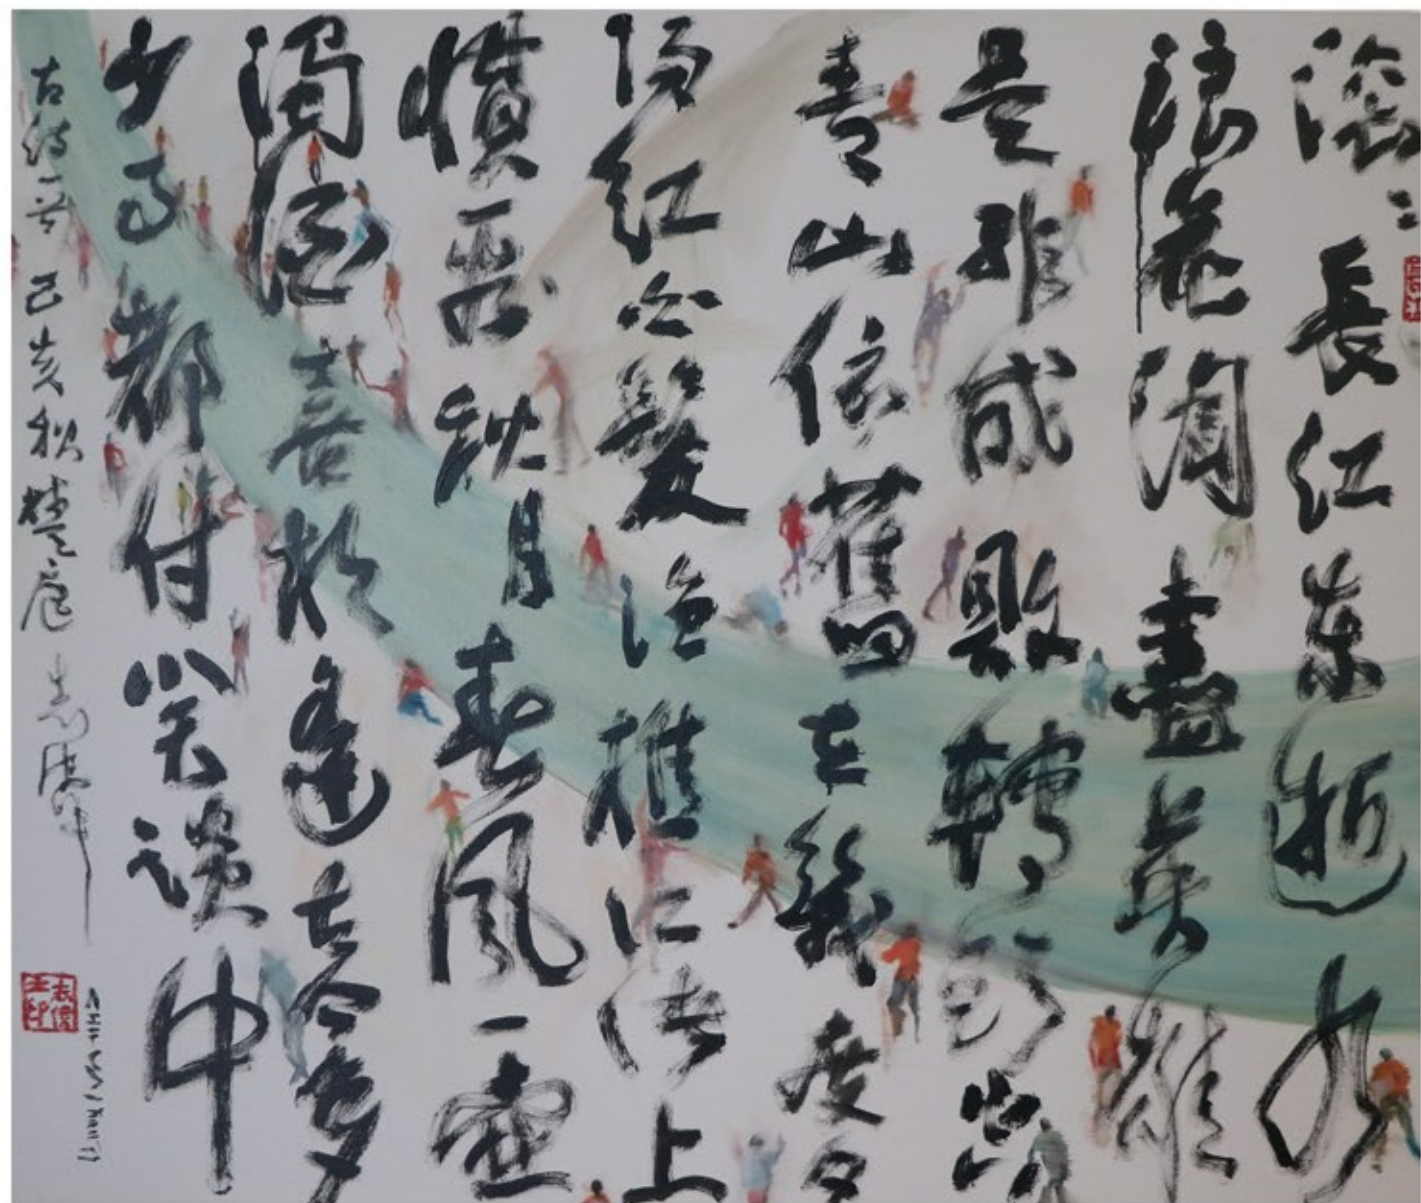 滚滚長江东逝水
浪花淘盡英雄
是非成敗轉頭空
青山依舊在幾度夕
陽紅白髮漁樵江渚上
慣看秋月春風一壺
濁酒喜相逢古今多
少事都付笑談中
古詩一首 己亥秋